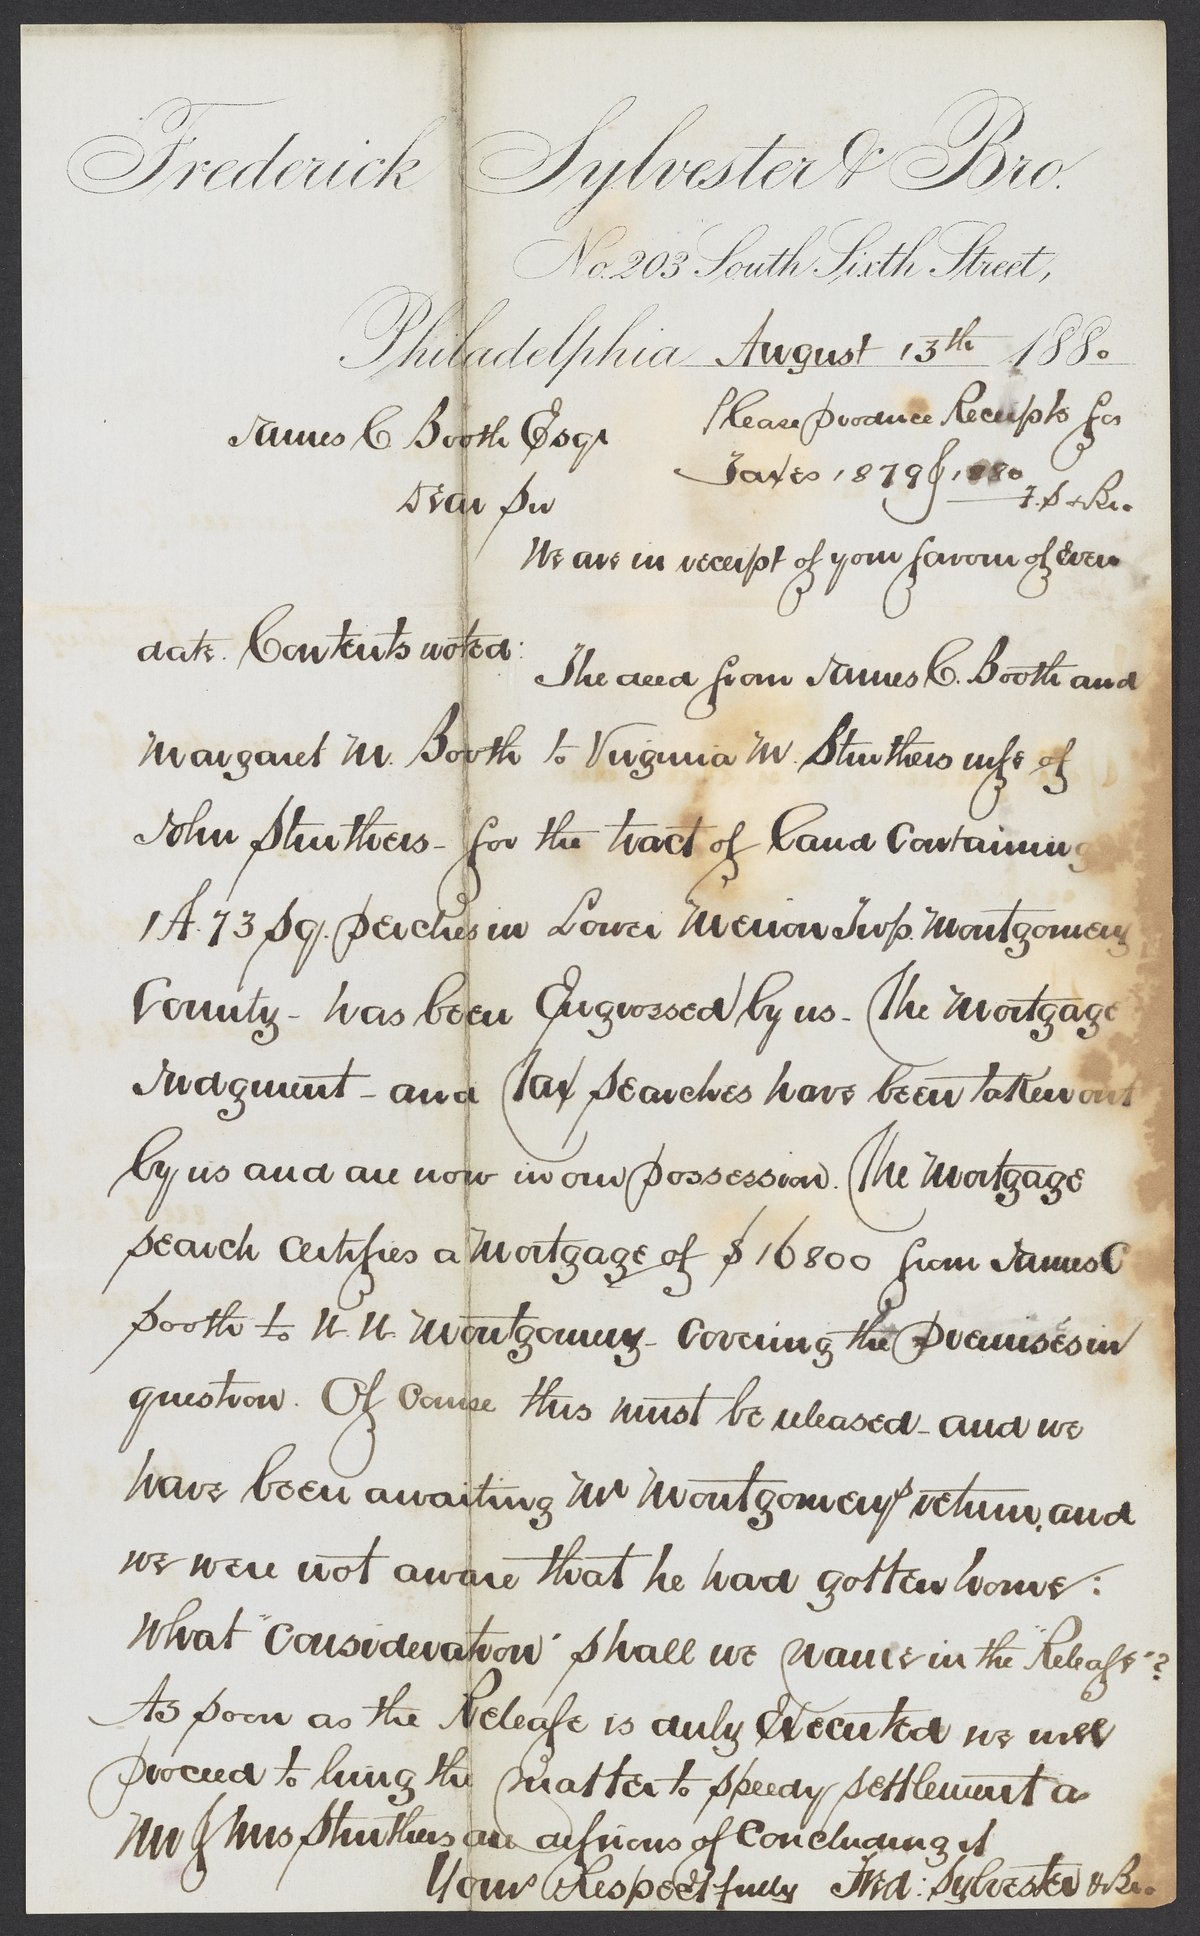 Frederick Sylvester & Bro.
No. 203 South Sixth Street,
Philadelphia August 13th 1880
James C Booth Esqr
Please produce Receipts for
Taxes 1879 & 1880
F. S & Bro.
Dear Sir
We are in receipt of your favour of Even
date. Contents noted:
The deed from James C. Booth and
Margaret M. Booth to Virginia W. Struthers wife of
John Struthers - for the tract of land Containing
1 A. 73 Sq. perches in Lower Merion Twp. Montgomery
County - has been Engrossed by us - The Mortgage
Judgment - and Tax searches have been taken out
by us and are now in our possession. The Mortgage
search certifies a Mortgage of $16800 from James C
Booth to Montgomery - Covering the premises in
question. Of Course this must be released - and we
have been awaiting Mr Montgomerys return, and
we were not aware that he had gotten home:
What "Consideration" shall we name in the "Release"?
As soon as the Release is duly Executed we will
proceed to bring the matter to speedy settlement as
Mr & Mrs Struthers are desirous of Concluding it
Yours Respectfully Fred: Sylvester & Bro.